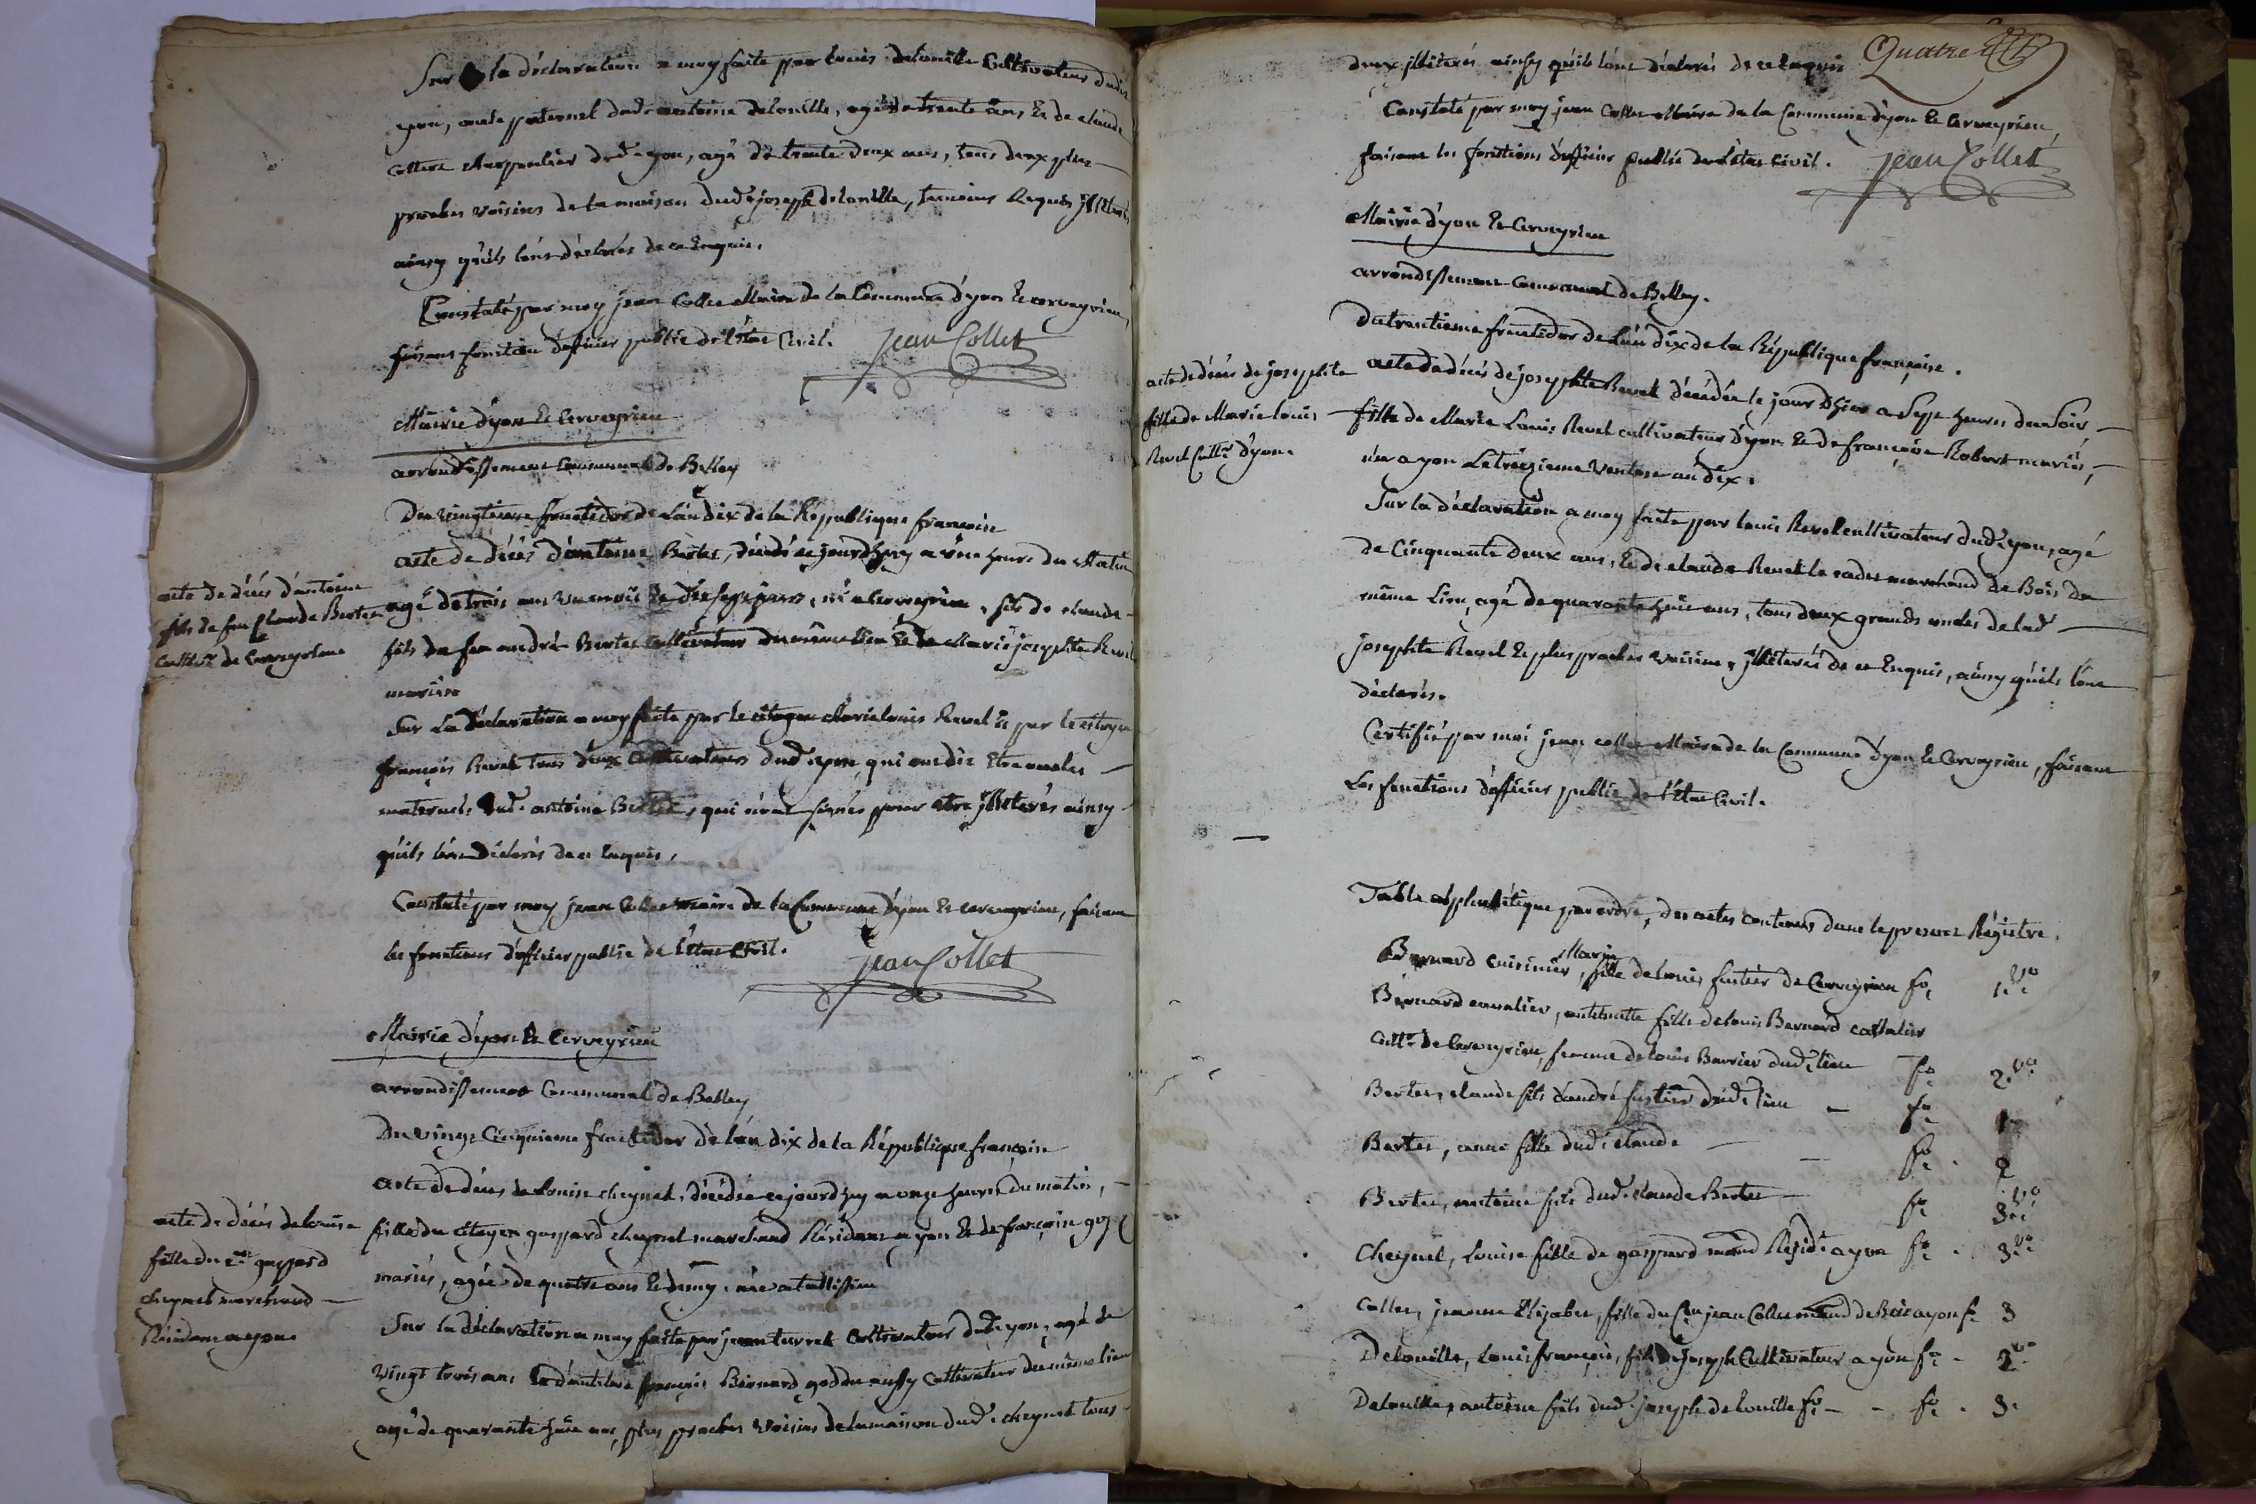 Sur la déclaration a moy faite par louis delouille Cultivateur dud.
yon, oncle paternel dud. antoine delouille, agé de trente ans & de claude
collet charpentier dud. yon, agé de trente deux ans, tous deux plus
proches voisins de la maison dud. joseph delouille, temoins Requis jlliterés
ainsy qu'ils l'ont déclarés de ce Enquis.
Constaté par moy jean Collet Maire de la Commune d'yon & cerveyrieu,
faisant fonction d'officier public de l'état Civil. jean Collet
Mairie d'yon & Cerveyrieu
arrondissement Communal de Belley
Du vingtieme fructidor de L'an Dix de la République françoise
acte de décès d'antoine Bertet, décédé ce jourdhuy a une heure du Matin
acte de décés d'antoine
fils de feu Claude Bertet
Cultiv.r de Cerveyrieu
agé de trois ans un mois & dix sept jours, né a Cerveyrieu, fils de claude
fils de feu andré Bertet Cultivateur du même lieu & de Marie josephte Revel
mariés
Sur La Déclaration a moy faite par le citoyen Marie louis Revel & par le citoyen
françois Revel tous deux Cultivateurs dud. yon, qui ont dit Etre oncles
maternels dud. antoine Bertet, qui n'ont signés pour etre jlliterés ainsy
qu'ils l'ont Déclarés de ce Enquis,
Constaté par moy jean Collet maire de la Commune d'yon & cerveyrieu, faisant
les fonctions d'officier public de l'état Civil. jean Collet
Mairie d'yon & Cerveyrieu
arrondissement Communal de Belley
Du vingt Cinquieme fructidor de l'an dix de la République françoise
acte de décés de louise cheynel, décédée ce jourd'huy a onze heures du matin,
acte de décés de louise
fille du c.en gaspard
cheynel marchand
Résidant a yon.
fille du Citoyen gaspard cheynel marchand Résidant a yon & de françoise
mariés, agée de quatre ans & demy, née a tallissieu
Sur la déclaration a moy faite par jean turrel Cultivateur dud. yon, agé de
vingt trois ans & d'anthelme françois Bernard goddu aussy Cultivateur du même lieu
agé de quarante huit ans, plus proches voisins de la maison dud. cheynel tous
Quatre
deux jlliterés ainsy qu'ils l'ont déclarés de ce Enquis
Constaté par moy jean Collet Maire de la Commune d'yon & Cerveyrieu,
faisant les fonctions d'officier public de l'état Civil. jean Collet
Mairie d'yon & Cerveyrieu
arrondissement Communal de Belley.
Du trentieme fructidor de L'an dix de la République françoise.
acte de décés de josephte
fille de Marie louis
Revel Cult.r d'yon.
acte de décés de josephte Revel décédée le jour d'hier a Sept heures du Soir,
fille de Marie Louis Revel cultivateur d'yon & de françoise Robert mariés,
née a yon Le treizieme Ventose an dix.
Sur la déclaration a moy faite par louis Revel cultivateur dud. yon, agé
de Cinquante deux ans, & de claude Revel le cadet marchand de Bois du
même Lieu, agé de quarante huit ans, tous deux grands oncles de lad.
josephte Revel & plus proches voisins, jlliterés de ce Enquis, ainsy qu'ils l'ont
déclarés.
Certifié par moi jean collet Maire de la Commune d'yon & Cerveyrieu, faisant
Les fonctions d'officier public de l'état Civil.
Table alphabétique par ordre, des actes contenus dans le present Régistre.
Bernard cuisinier, Marie fille de louis fustier de Cerveyrieu f.o 1. v.o
Bernard cavalier, anthelmette fille de louis Bernard cavalier
Cult.r de Cerveyrieu, femme de louis Barrier dud. lieu f.o 2. v.o
Bertet, claude fils d'andré fustier dud. lieu f.o 1
Bertet, anne fille dud. claude f.o 2
Bertet, antoine fils dud. claude Bertet f.o 3. v.o
Cheynel, Louise fille de gaspard march.d Résid.t a yon f.o 3. v.o
Collet, jeanne Elizabet, fille du C.en jean Collet march.d de Bois a yon f.o 3
Delouille, Louis françois, fils de joseph Cultivateur a yon f.o 2. v.o
Delouille, antoine fils dud. joseph delouille f.o 3.